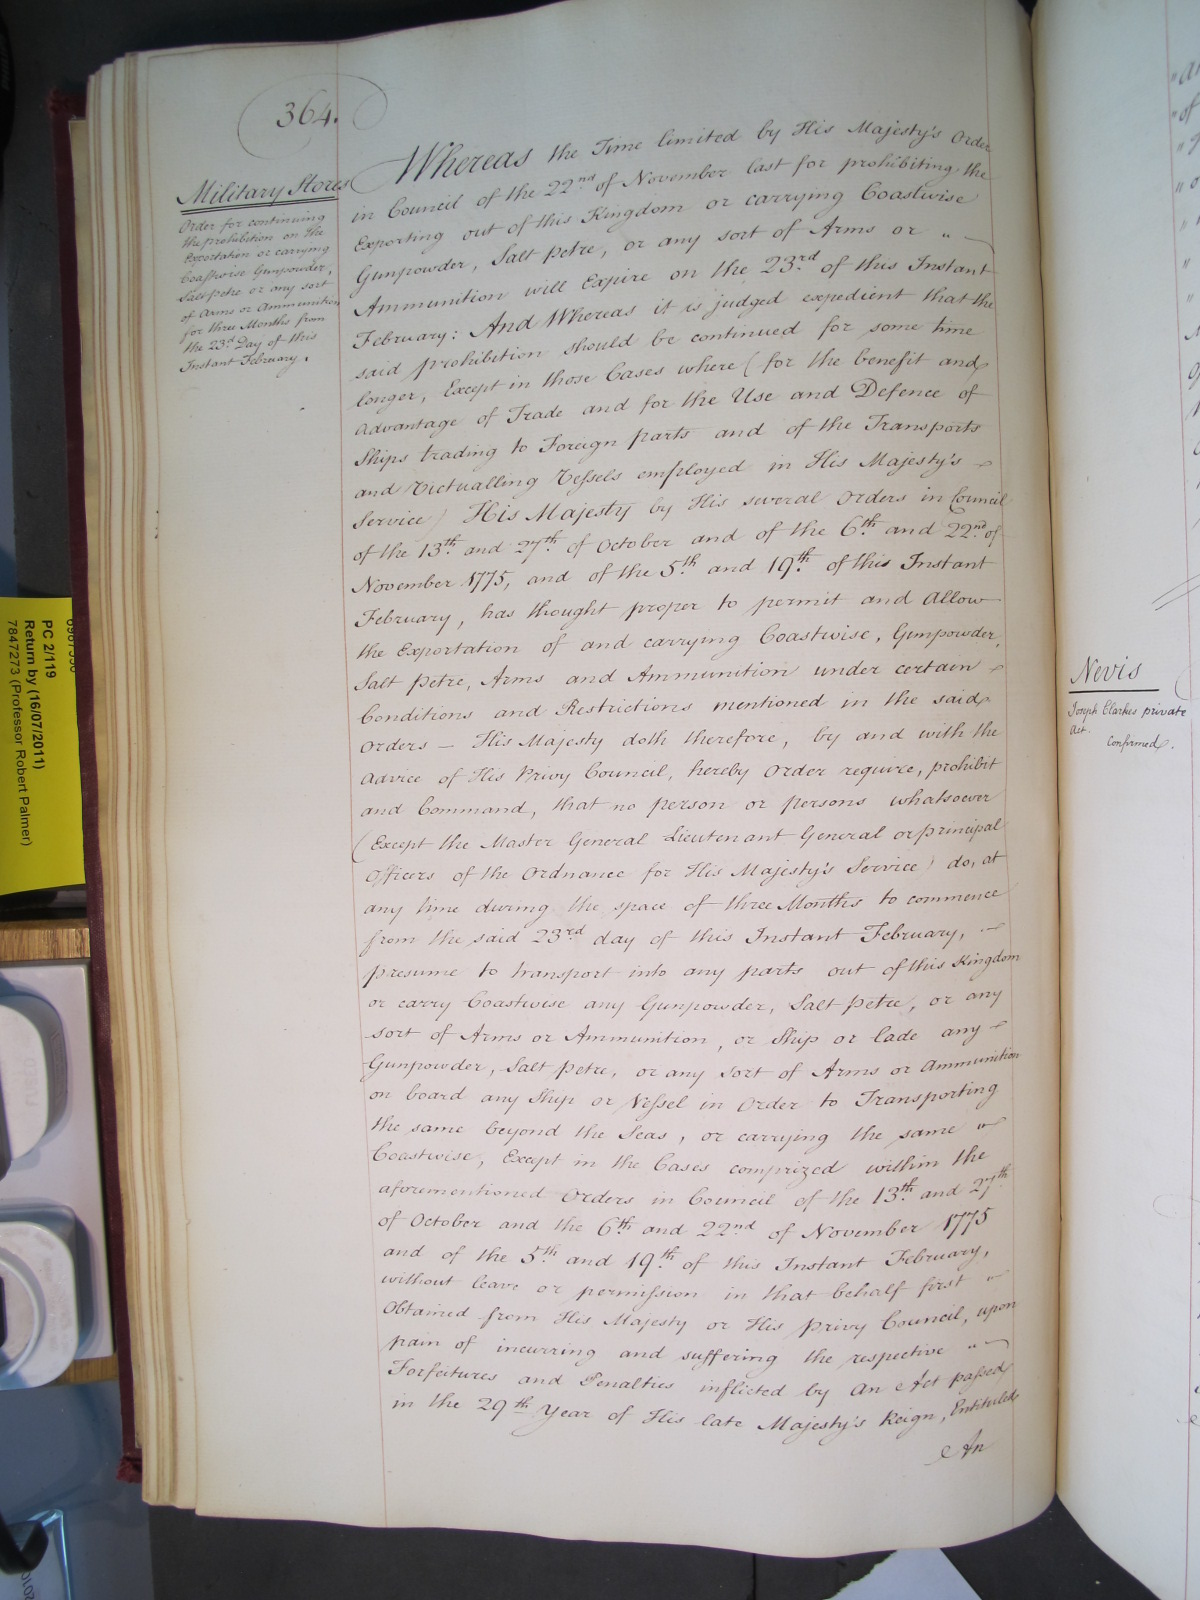 364.
Military Stores
Order for continuing
the prohibition on the
Exportation or carrying
Coastwise Gunpowder,
Saltpetre or any sort
of Arms or Ammunition
for three Months from
the 23.d Day of this
Instant February.
Whereas the Time limited by His Majesty's Order
in Council of the 22nd of November last for prohibiting the
Exporting out of this Kingdom or carrying Coastwise
Gunpowder, Salt Petre, or any sort of Arms or "
Ammunition will Expire on the 23.rd of this Instant
February: And Whereas it is judged expedient that the
said prohibition should be continued for some time
longer, Except in those Cases where (for the benefit and
Advantage of Trade and for the Use and Defence of
Ships trading to Foreign parts and of the Transports
and Victualling Vessels employed in His Majesty's -
Service) His Majesty by His several Orders in Council
of the 13.th and 27.th of October and of the 6th and 22nd of
November 1775, and of the 5th and 19.th of this Instant
February, has thought proper to permit and Allow
the Exportation of and carrying Coastwise, Gunpowder,
Salt Petre, Arms and Ammunition under certain -
Conditions and Restrictions mentioned in the said
Orders — His Majesty doth therefore, by and with the
Advice of His Privy Council, hereby Order require, prohibit
and Command, that no person or persons whatsoever
(Except the Master General Lieutenant General or principal
Officers of the Ordnance for His Majesty's Service) do, at
any time during the space of three Months to commence
from the said 23rd day of this Instant February, -
presume to transport into any parts out of this Kingdom
or carry Coastwise any Gunpowder, Salt Petre, or any
sort of Arms or Ammunition, or Ship or lade any -
Gunpowder, Salt Petre, or any sort of Arms or Ammunition
on board any Ship or Vessel in Order to Transporting
the same beyond the Seas, or carrying the same "
Coastwise, Except in the Cases comprized within the
aforementioned Orders in Council of the 13th and 27th
of October and the 6th and 22nd of November 1775
and of the 5th and 19.th of this Instant February,
without leave or permission in that behalf first "
Obtained from His Majesty or His Privy Council, upon
pain of incurring and suffering the respective "
Forfeitures and Penalties inflicted by An Act passed
in the 29th Year of His late Majesty's Reign, Entituled
An
Nevis
Joseph Clarkes private
Act.
confirmed.
PC 2/119
Return by (16/07/2011)
7847273 (Professor Robert Palmer)